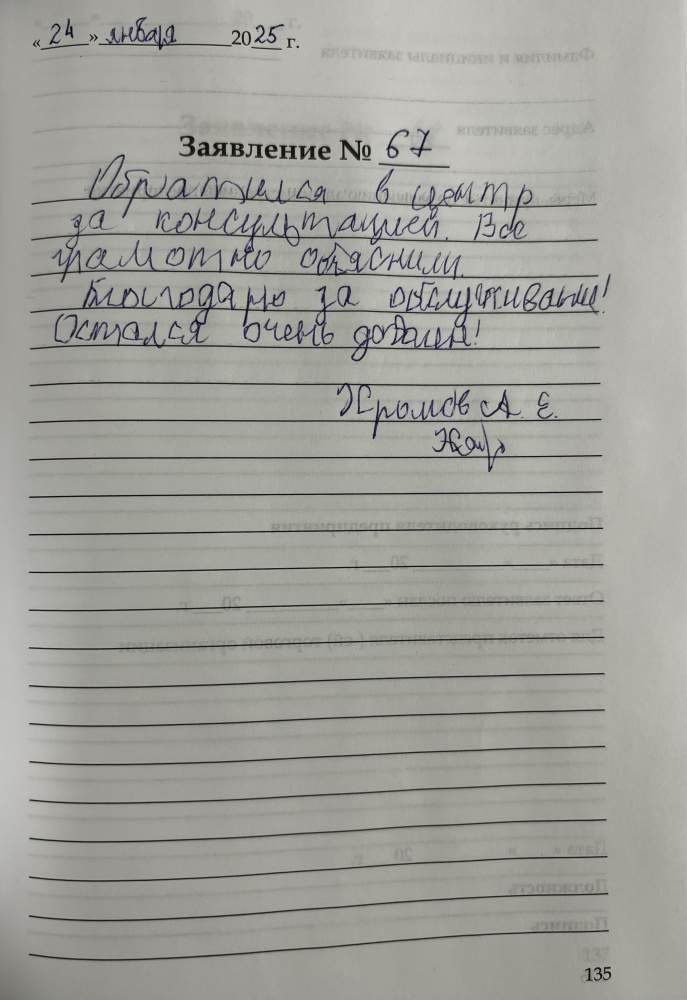 «24» января 2025 г.
Заявление № 67
Обратился в центр
за консультацией. Все
грамотно объяснили.
Благодарю за обслуживание!
Остался очень доволен!
Хромов А. Е.
135